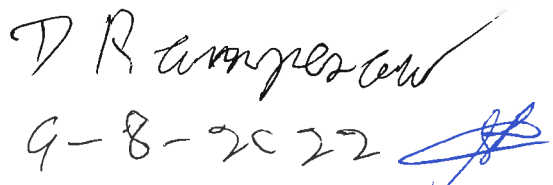 D Rampersaw
9-8-2022